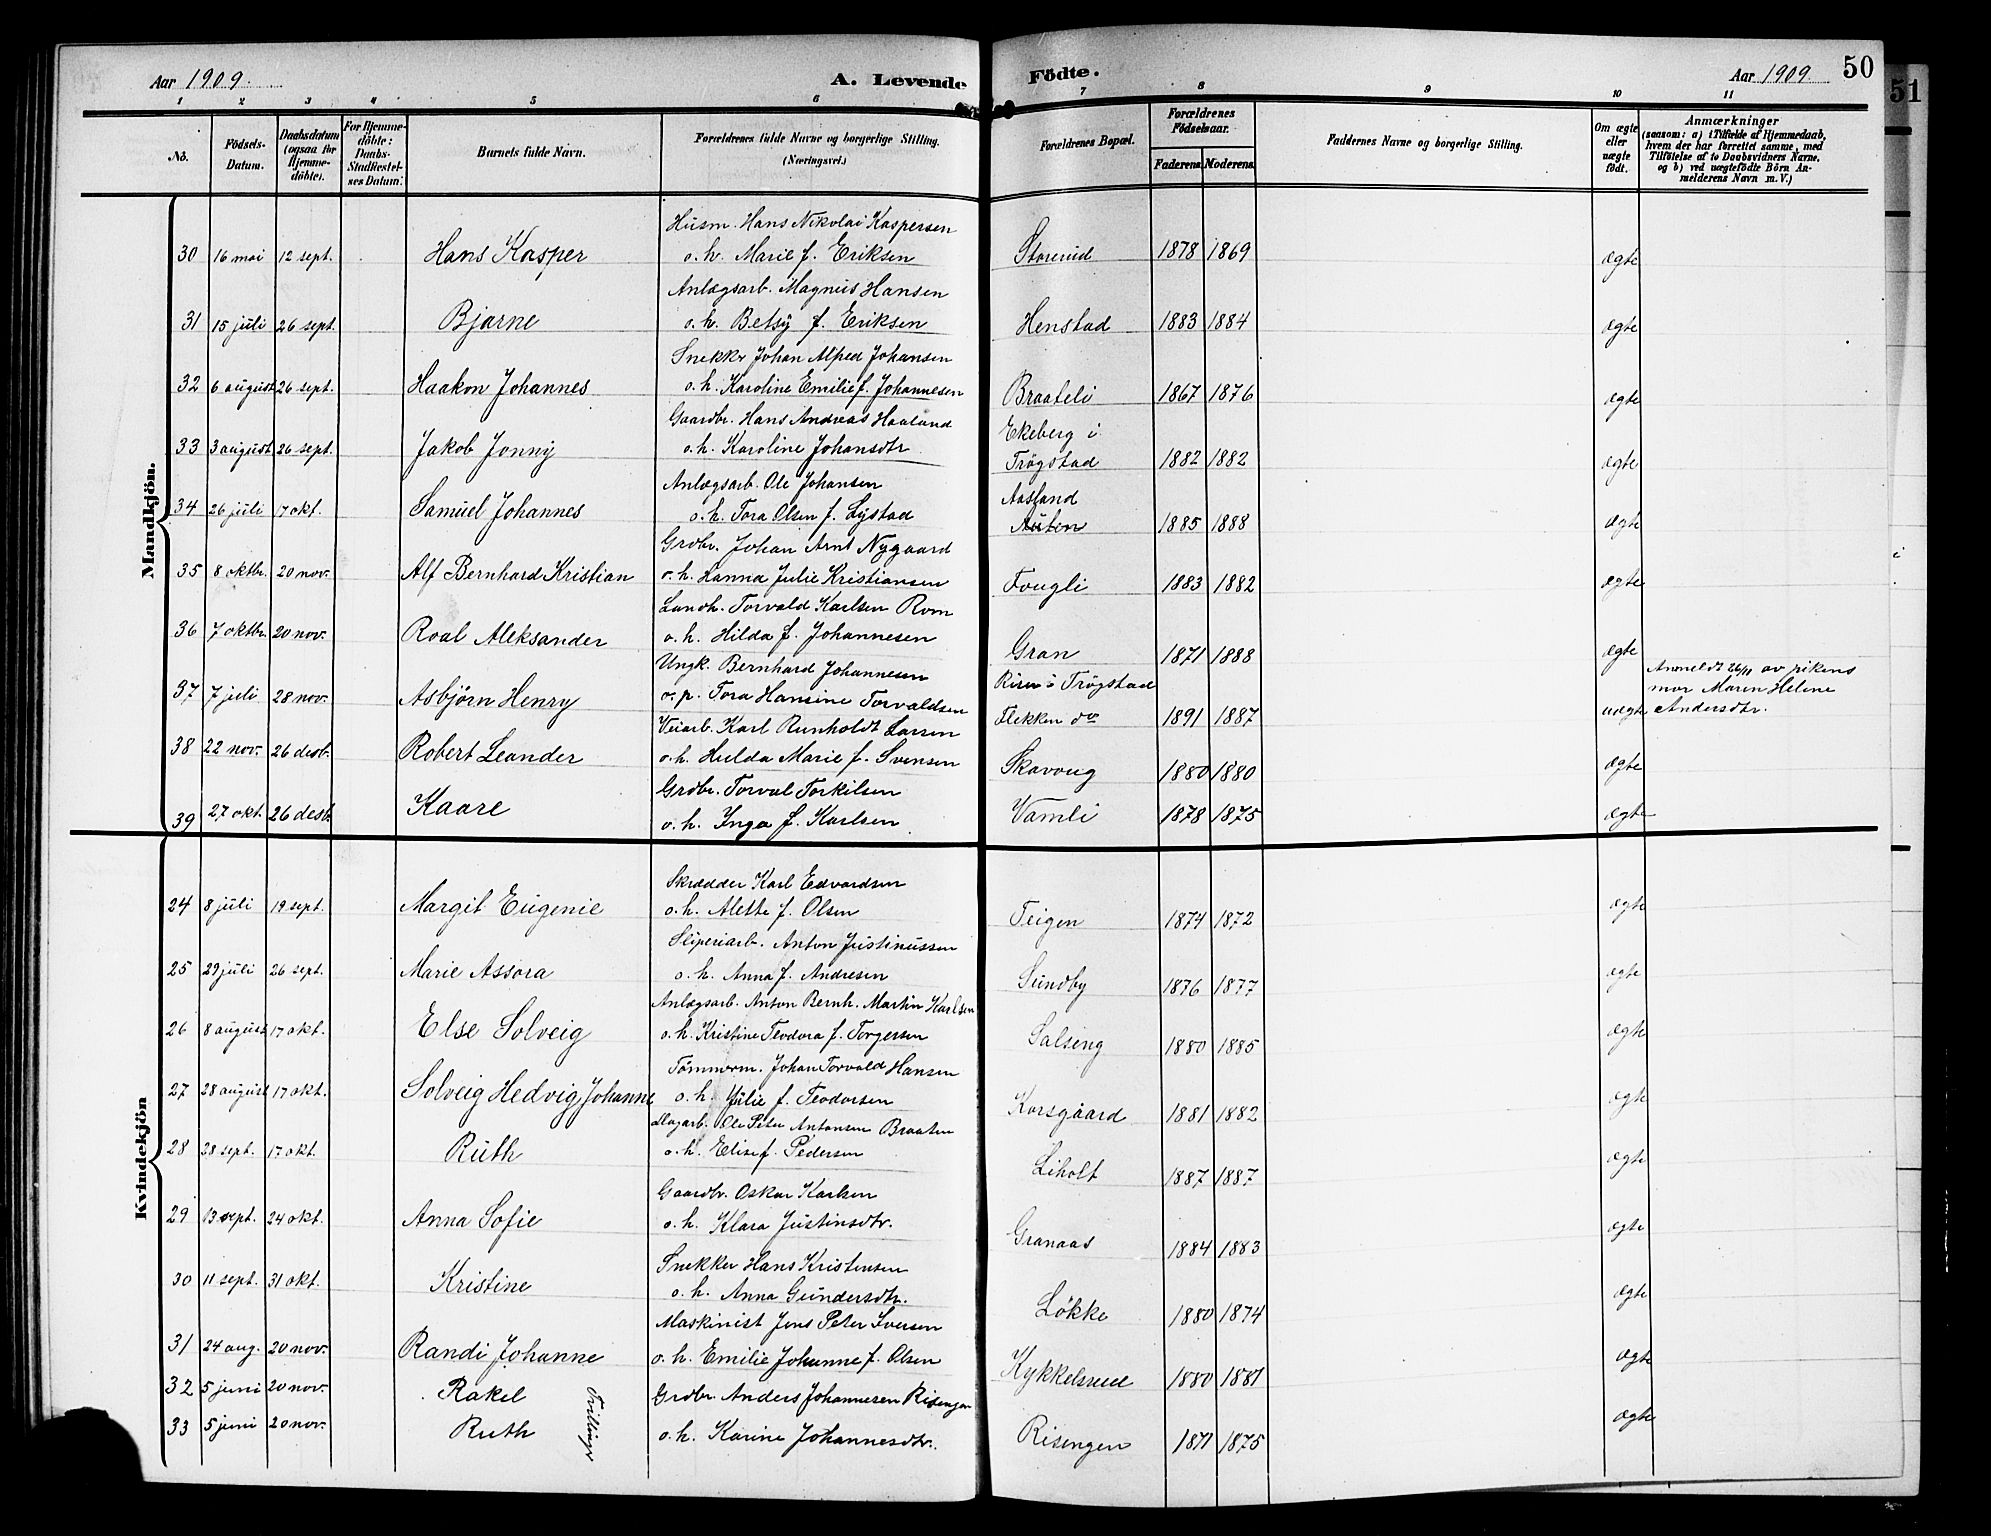 Aar 1909. A. Levende Födte. Aar 1909. 50
51
1 2 3 4 5 6 7 8 9 10 11
No. Födsels-Datum. Daabsdatum (ogsaa for Hjemme-döbte). For Hjemme-döbte: Daabs-Stadfæstel-ses Datum. Barnets fulde Navn. Forældrenes fulde Navne og borgerlige Stilling. (Næringsvei.) Forældrenes Bopæl. Forældrenes Födselsaar. Faderens. Moderens. Faddernes Navne og borgerlige Stilling. Om ægte eller uægte födt. Anmærkninger (saasom: a) i Tilfælde af Hjemmedaab, hvem der har forrettet samme, med Tilföielse af to Daabsvidners Navne, og b) ved uægtefödte Börn An-melderens Navn m. V.)
Mandkjön.
Husm. Hans Nikolai Kaspersen
30 16 mai 12 sept. Hans Kasper o. h. Marie f. Eriksen Storerud 1878 1869 ægte
Anlægsarb. Magnus Hansen
31 15 juli 26 sept. Bjarne o. h. Betsy f. Eriksen Henstad 1883 1884 ægte
Snekkr Johan Alfred Johansen
32 6 august 26 sept. Haakon Johannes o. h. Karoline Emilie f. Johannesen Braateli 1867 1876 ægte
Gaardbr. Hans Andreas Haaland Ekeberg i
33 3 august 26 sept. Jakob Jonny o. h. Karoline Johansdtr Trøgstad 1882 1882 ægte
Anlægsarb. Ole Johansen Aasland
34 26 juli 17 okt. Samuel Johannes o. h. Tora Olsen f. Lystad Auten 1885 1888 ægte
Grdbr. Johan Arnt Nygaard
35 8 oktbr. 20 nov. Alf Bernhard Kristian o. h. Hanna Julie Kristiansen Fougli 1883 1882 ægte
Landh. Torvald Karlsen Rom
36 7 oktbr. 20 nov. Roal Aleksander o. h. Hilda f. Johannesen Gran 1871 1888 ægte
Ungk. Bernhard Johannesen Riin i Trøgstad Anmeldt 26/11 av pikens
37 7 juli 28 nov. Asbjørn Henry o. p. Tora Hansine Torvaldsen Flekken do 1891 1887 uægte mor Maren Helene
Andersdtr.
Veiarb. Karl Runholdt Larsen
38 22 nov. 26 desb. Robert Leander o. h. Hulda Marie f. Svensen Skavoug 1880 1880 ægte
Grdbr. Torval Torkilsen
39 27 okt. 26 desb. Kaare o. h. Inga f. Karlsen Vamli 1878 1875 ægte
Kvindekjön
Skrædder Karl Edvardsen
24 8 juli 19 sept. Margit Eugenie o. h. Alette f. Olsen Teigen 1874 1872 ægte
Sliperiarb. Anton Justinussen
25 29 juli 26 sept. Marie Assora o. h. Anna f. Andresen Sundby 1876 1877 ægte
Anlægsarb. Anton Bernh. Martin Karlsen
26 8 august 17 okt. Else Solveig o. h. Kristine Teodora f. Torgersen Salseng 1880 1885 ægte
Tømmerm. Johan Torvald Hansen
27 28 august 17 okt. Solveig Hedvig Johanne o. h. Julie f. Teodorsen Korsgaard 1881 1882 ægte
Ole Peter Antonsen Braaten
28 28 sept. 17 okt. Ruth o. h. Elise f. Pedersen Liholt 1887 1887 ægte
Gaardbr. Oskar Karlsen
29 13 sept. 24 okt. Anna Sofie o. h. Klara Justinsdtr. Granaas 1884 1883 ægte
Snekker Hans Kristensen
30 11 sept. 31 okt. Kristine o. h. Anna Gundersdtr. Løkke 1880 1874 ægte
Maskinist Jens Peter Iversen
31 24 aug. 20 nov. Randi Johanne o. h. Emilie Johanne f. Olsen Kykkelsrud 1880 1881 ægte
32 5 juni 20 nov. Rakel Tvillinger Grdbr. Anders Johannesen Risengen
33 5 juni 20 nov. Ruth o. h. Karine Johannesdtr. Risengen 1871 1875 ægte